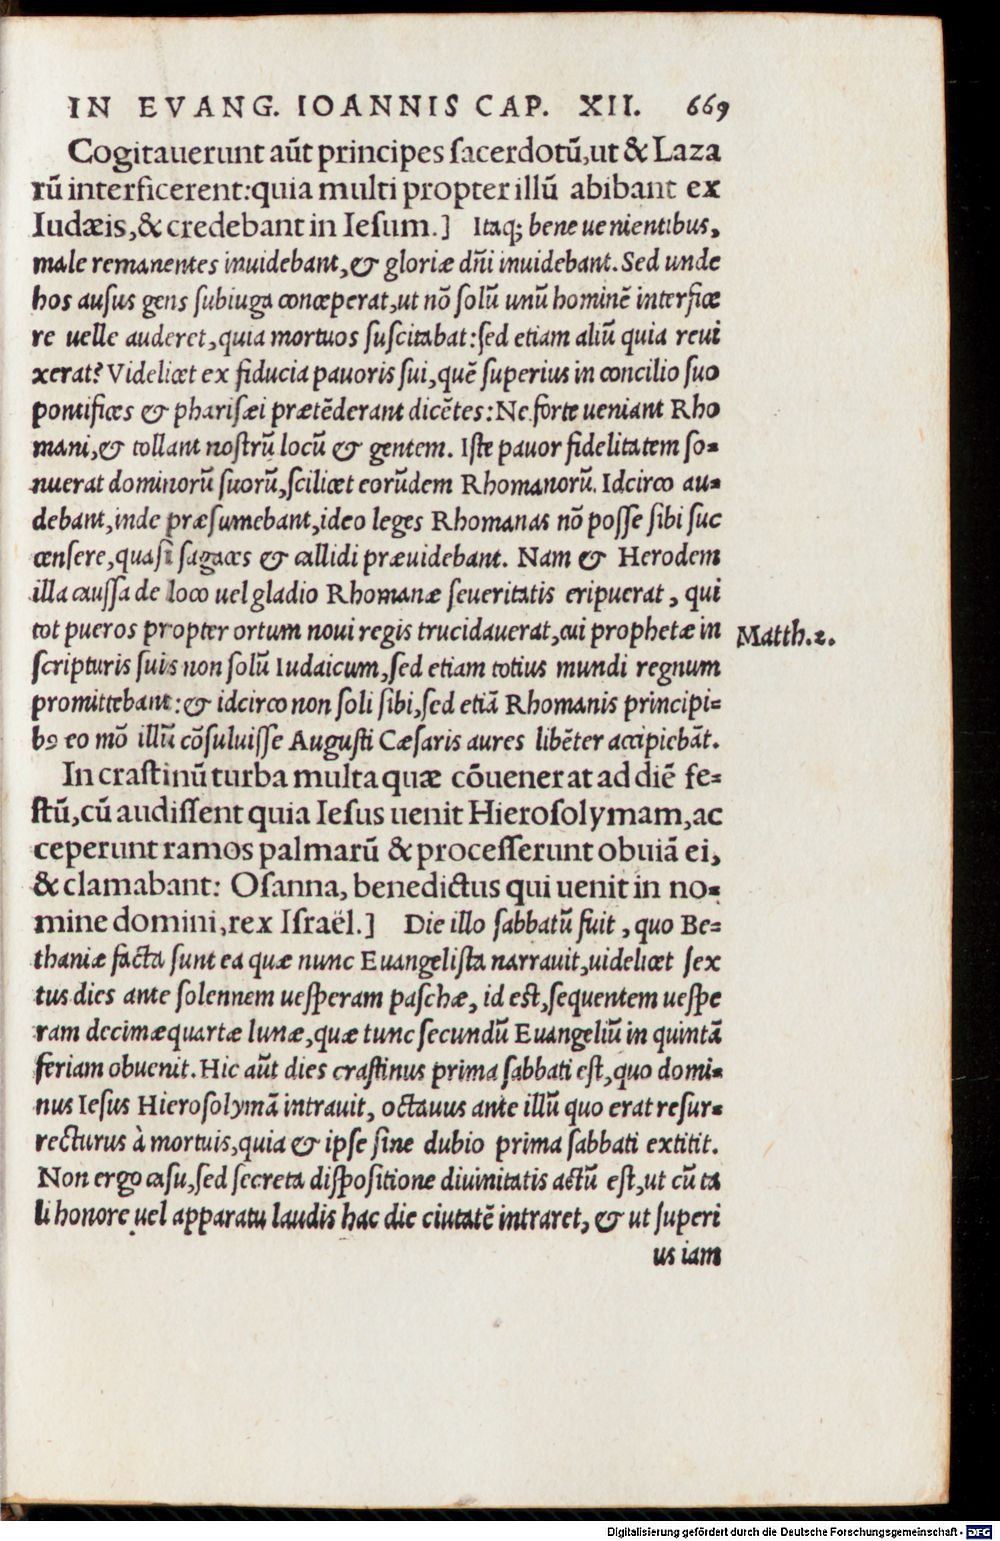 IN EVANG. IOANNIS CAP. XII. 669
Cogitauerunt aũt principes ſacerdotũ,ut & Laza
rũ interficerent:quia multi propter illũ abibant ex
Iudæis,& credebant in Ieſum.] Itaq; bene uenientibus,
male remanentes inuidebant,& gloriæ dñi inuidebant. Sed unde
hos auſus gens ſubiuga conceperat,ut nõ ſolũ unũ hominẽ interfice
re uelle auderet,quia mortuos ſuſcitabat:ſed etiam aliũ quia reui
xerat? Videlicet ex fiducia pauoris ſui,quẽ ſuperius in concilio ſuo
pontifices & phariſæi prætẽderant dicẽtes: Ne forte ueniant Rho
mani,& tollant noſtrũ locũ & gentem. Iſte pauor fidelitatem ſo=
nuerat dominorũ ſuorũ,ſcilicet eorũdem Rhomanorũ. Idcirco au=
debant,inde præſumebant,ideo leges Rhomanas nõ poſſe ſibi ſuc
cenſere,quaſi ſagaces & callidi præuidebant. Nam & Herodem
illa cauſſa de loco uel gladio Rhomanæ ſeueritatis eripuerat, qui
tot pueros propter ortum noui regis trucidauerat,cui prophetæ in
Matth.2.
ſcripturis ſuis non ſolũ Iudaicum,ſed etiam totius mundi regnum
promittebant: & idcirco non ſoli ſibi,ſed etiã Rhomanis principi=
bꝰ eo mõ illũ cõſuluiſſe Auguſti Cæſaris aures libẽter accipiebãt.
In craſtinũ turba multa quæ cõuenerat ad diẽ fe=
ſtũ,cũ audiſſent quia Ieſus uenit Hieroſolymam,ac
ceperunt ramos palmarũ & proceſſerunt obuiã ei,
& clamabant: Oſanna, benedictus qui uenit in no=
mine domini,rex Iſraël.] Die illo ſabbatũ fuit, quo Be=
thaniæ facta ſunt ea quæ nunc Euangeliſta narrauit,uidelicet ſex
tus dies ante ſolennem ueſperam paſchæ, id eſt,ſequentem ueſpe
ram decimæquartæ lunæ,quæ tunc ſecundũ Euangeliũ in quintã
feriam obuenit. Hic aũt dies craſtinus prima ſabbati eſt,quo domi=
nus Ieſus Hieroſolymã intrauit, octauus ante illũ quo erat reſur=
recturus à mortuis,quia & ipſe ſine dubio prima ſabbati extitit.
Non ergo caſu,ſed ſecreta diſpoſitione diuinitatis actũ eſt,ut cũ ta
li honore uel apparatu laudis hac die ciutatẽ intraret, & ut ſuperi
us iam
Digitalisierung gefördert durch die Deutsche Forschungsgemeinschaft - DFG